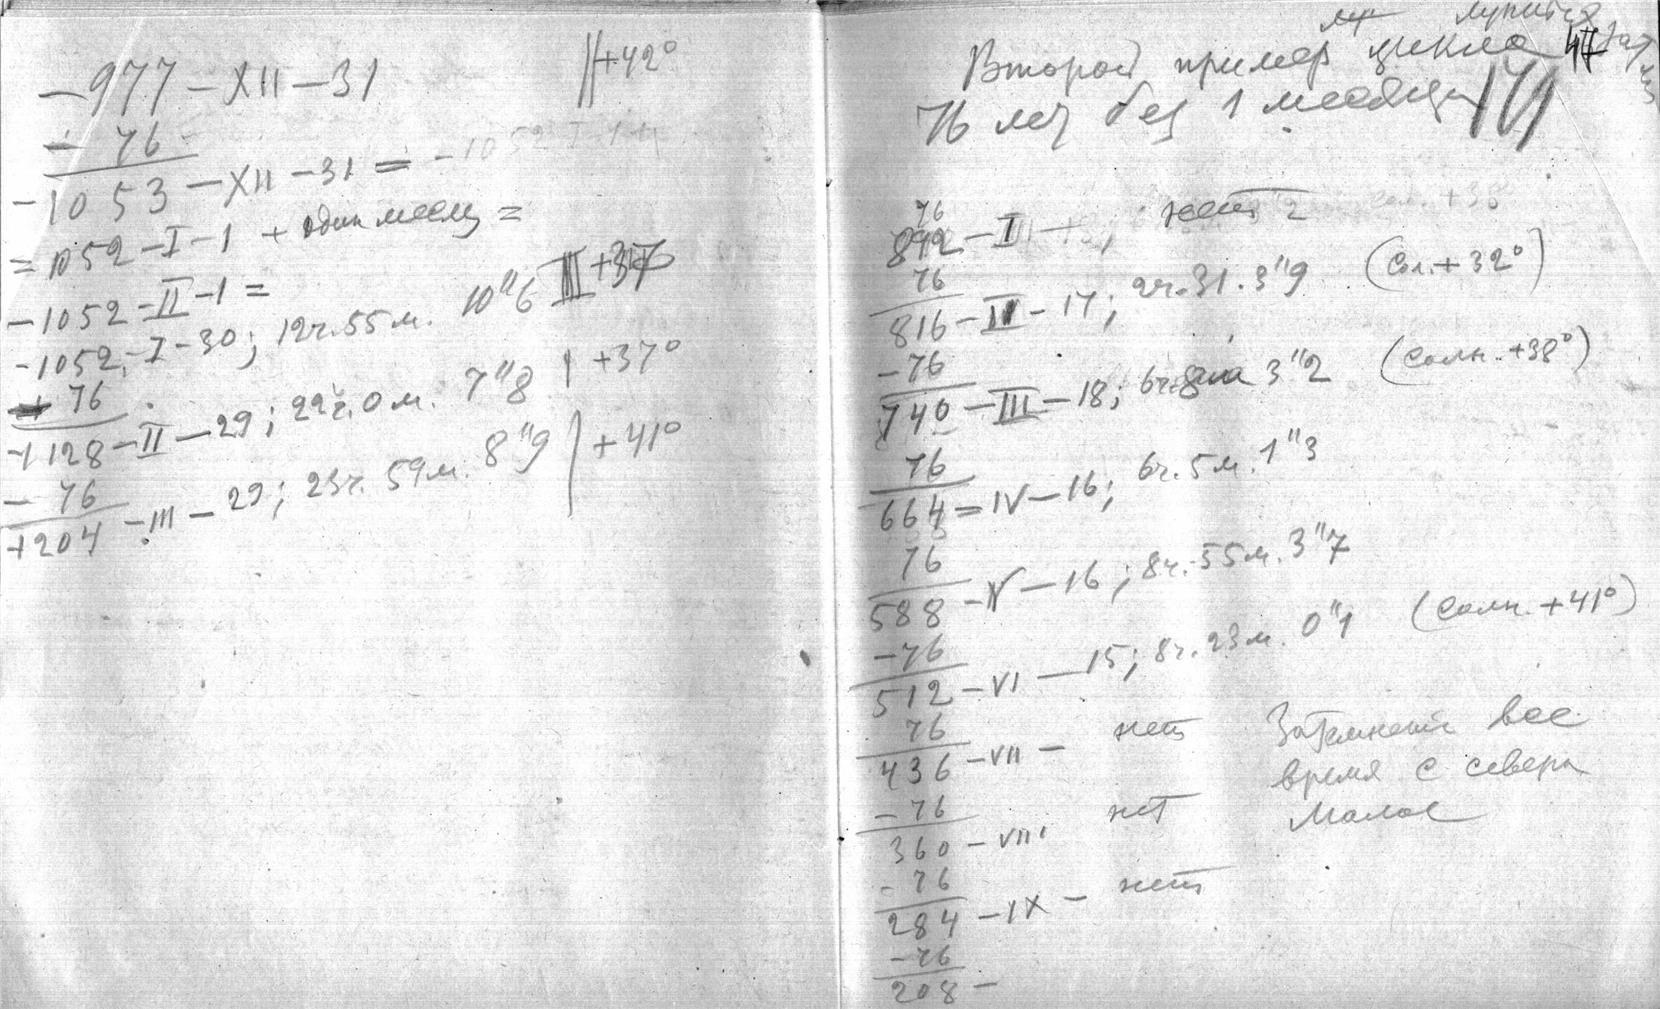 -977-XII-31 ||+42°
- 76
-1053-XII-31 = -1052 I-1
=1052-I-1 + один месяц =
-1052-II-1=
-1052-I-30; 12ч.55м. 10"6 III +37
+ 76
-1128-II-29; 22ч.0м. 7"8 | +37°
- 76
+204-III-29; 23ч.59м. 8"9 | +41°
Второй пример цикла
76 лет без 1 месяца
76
892-I- нет
76
816-II-17; 2ч.31.3"9 (Сол.+32°)
-76
740-III-18; 6ч. 3"2 (Солн.+38°)
76
664=IV-16; 6ч.5м.1"3
76
588-V-16; 8ч.55м.3"7
-76
512-VI-15; 8ч.23м. 0"1 (Солн.+41°)
76
436-VII- нет Затмения все
время с севера
-76
360-VIII нет Малое
-76
284-IX- нет
-76
208-